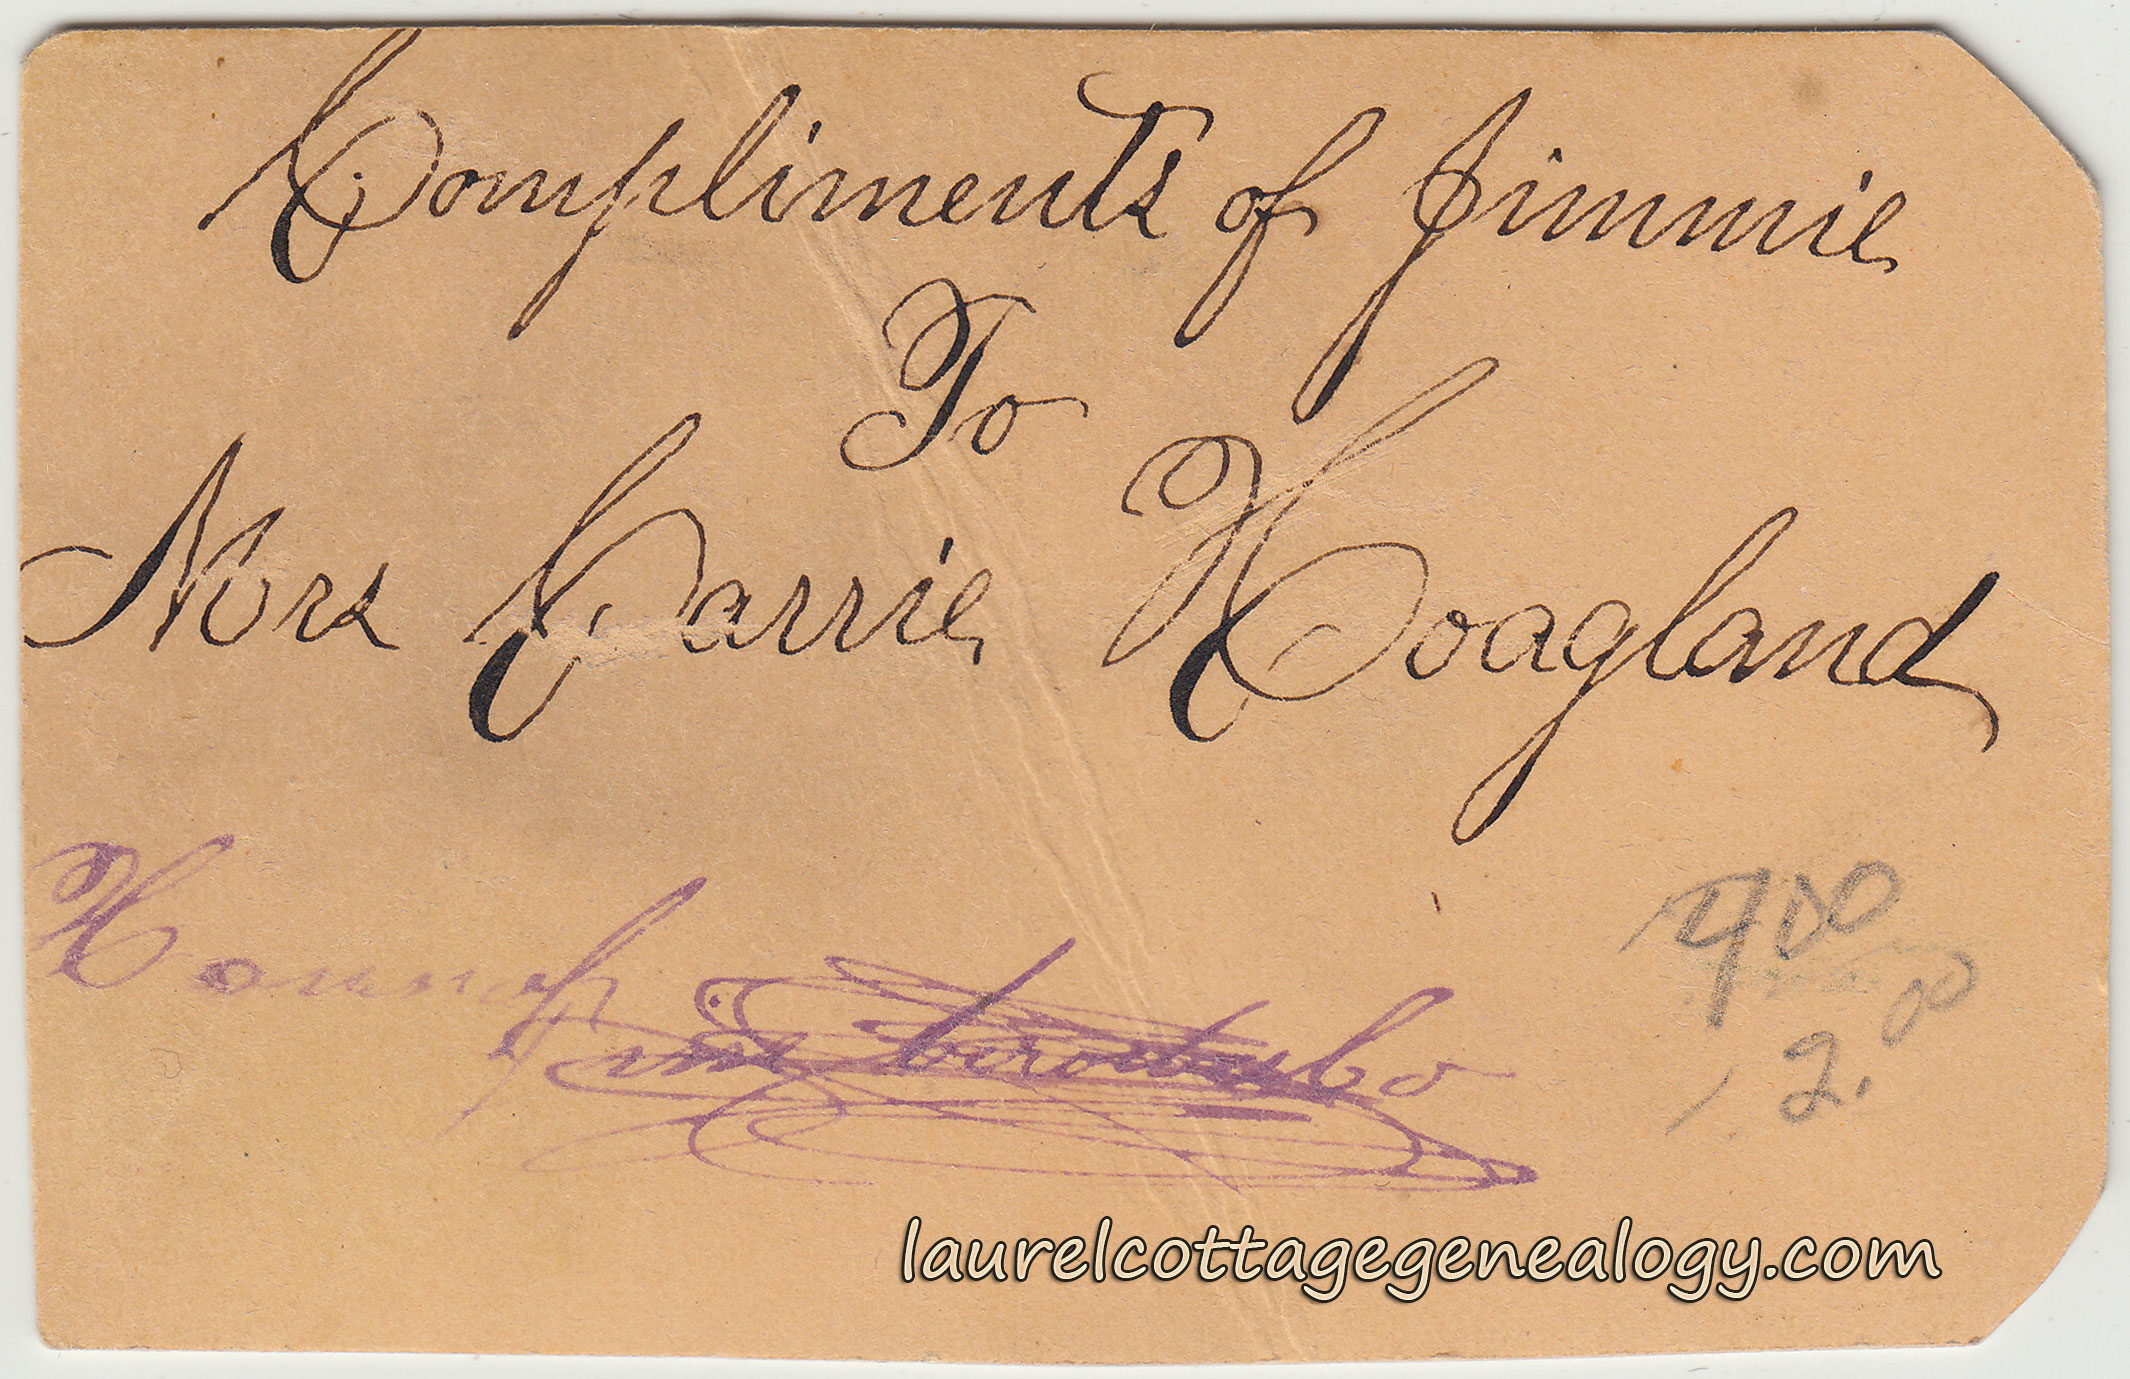 Compliments of Jimmie
To
Mrs Carrie Hoagland
Hannah
400
00
2.
laurelcottagegenealogy.com